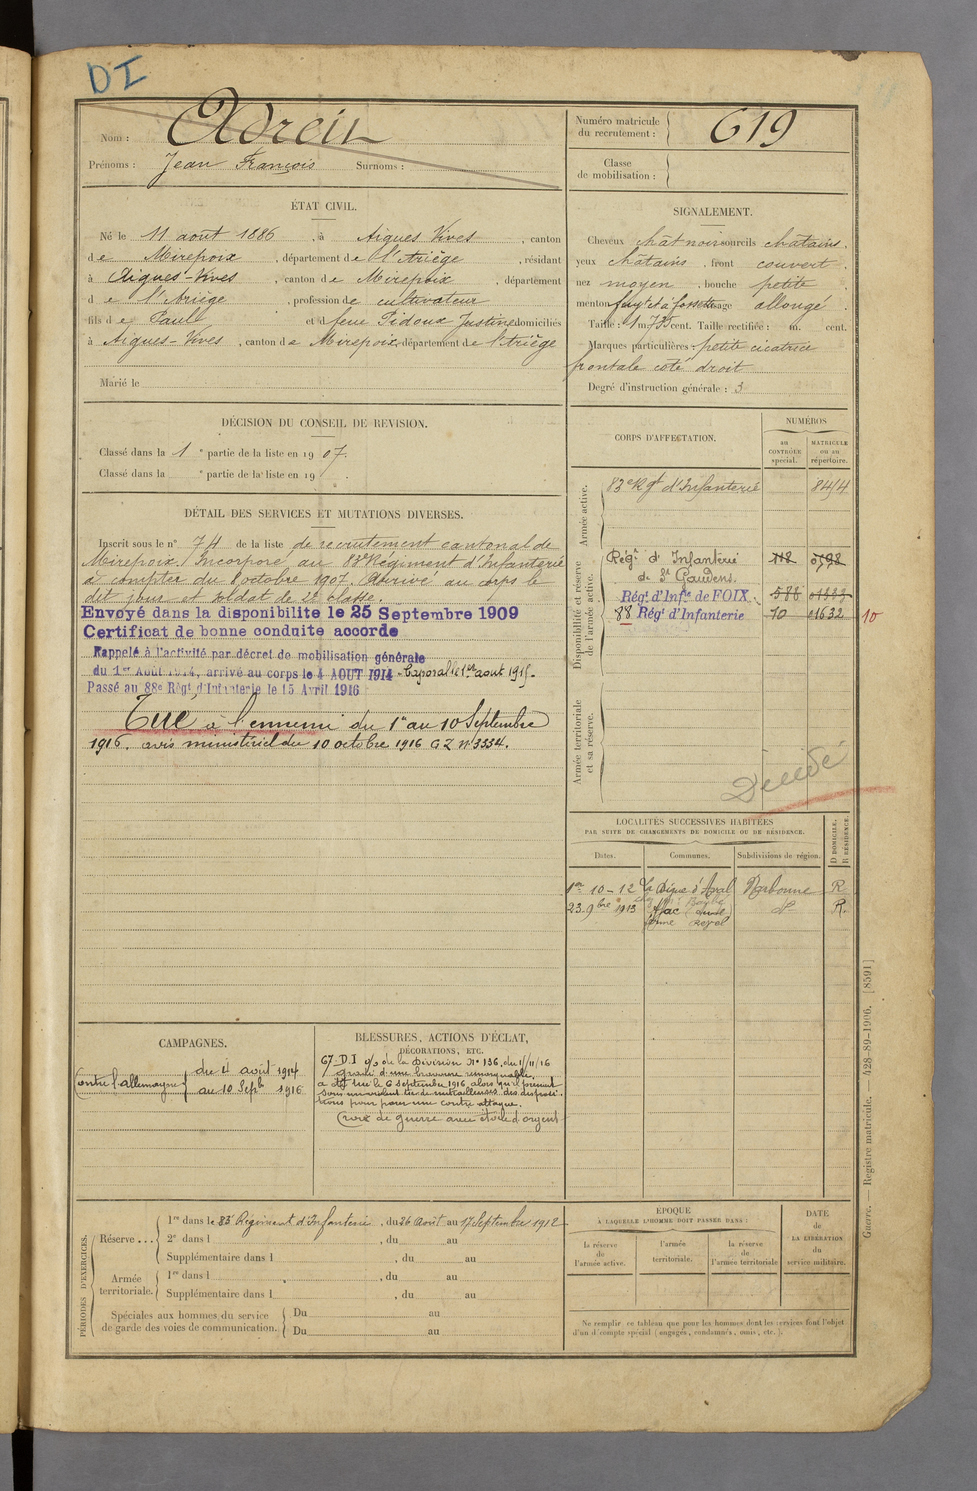 DI
Nom : Adrein
Prénoms : Jean François Surnoms :
Numéro matricule du recrutement : 619
Classe de mobilisation :
ÉTAT CIVIL.
Né le 11 août 1886, à Aigues Vives, canton
de Mirepoix, département de l'Ariège, résidant
à Aigues-Vives, canton de Mirepoix, département
de l'Ariège, profession de cultivateur
fils de Paul et de feue Pidoux Justine domiciliés
à Aigues-Vives, canton de Mirepoix, département de l'Ariège
Marié le
SIGNALEMENT.
Cheveux chât noirs sourcils châtains.
yeux châtains, front couvert,
nez moyen, bouche petite,
menton à fossette visage allongé.
Taille : 1 m. 735 cent. Taille rectifiée : m. cent.
Marques particulières : petite cicatrice
frontale côté droit
Degré d'instruction générale : 3
DÉCISION DU CONSEIL DE REVISION.
Classé dans la 1e partie de la liste en 1907.
Classé dans la e partie de la liste en 19 .
DÉTAIL DES SERVICES ET MUTATIONS DIVERSES.
Inscrit sous le n° 74 de la liste de recrutement cantonal de
Mirepoix. Incorporé au 83e Régiment d'Infanterie
à compter du 8 octobre 1907. Arrivé au corps le
dit jour et soldat de 2e classe.
Envoyé dans la disponibilite le 25 Septembre 1909
Certificat de bonne conduite accorde
Rappelé à l'activité par décret de mobilisation générale
du 1er Août 1914, arrivé au corps le 4 AOUT 1914 - Caporal le 1er août 1915.
Passé au 88e Régt d'Infanterie le 15 Avril 1916
Tué à l'ennemi du 1er au 10 Septembre
1916. avis ministériel du 10 octobre 1916 GZ n° 3334.
CORPS D'AFFECTATION.
NUMÉROS
au CONTRÔLE spécial.
MATRICULE ou au répertoire.
Armée active.
83e Rgt d'Infanterie 8414
Disponibilité et réserve de l'armée active.
Régt d'Infanterie
de St Gaudens.
Rég. d'Infie de FOIX.
88 Rég' d'Infanterie 70 01632 10
Armée territoriale et sa réserve.
Décédé
LOCALITÉS SUCCESSIVES HABITÉES
PAR SUITE DE CHANGEMENTS DE DOMICILE OU DE RÉSIDENCE.
Dates. Communes. Subdivisions de région. D DOMICILE. R RÉSIDENCE.
1er 10-12 La Digne d'Aval Narbonne R
23 9bre 1913 Ajac (Aude) do R.
CAMPAGNES.
Contre l'allemagne du 4 août 1914
au 10 Septb 1916
BLESSURES, ACTIONS D'ÉCLAT, DÉCORATIONS, ETC.
67e D.I o/o de la Division N° 136, du 1/11/16
gradé d'une bravoure remarquable,
a été tué le 6 septembre 1916, alors qu'il prenait
sous un violent tir de mitrailleuses des disposi-
tions pour parer une contre attaque.
Croix de guerre avec étoile d'argent
PÉRIODES D'EXERCICES.
Réserve... 1re dans le 83e Régiment d'Infanterie, du 26 Août au 17 Septembre 1912
2e dans l , du au
Supplémentaire dans l , du au
Armée territoriale. 1re dans l , du au
Supplémentaire dans l , du au
Spéciales aux hommes du service de garde des voies de communication. Du au
Du au
ÉPOQUE
À LAQUELLE L'HOMME DOIT PASSER DANS :
la réserve de l'armée active.
l'armée territoriale.
la réserve de l'armée territoriale
DATE de LA LIBÉRATION du service militaire.
Ne remplir ce tableau que pour les hommes dont les services font l'objet
d'un décompte spécial (engagés, condamnés, omis, etc.).
Guerre. — Registre matricule. — 428-89-1906. [8591]